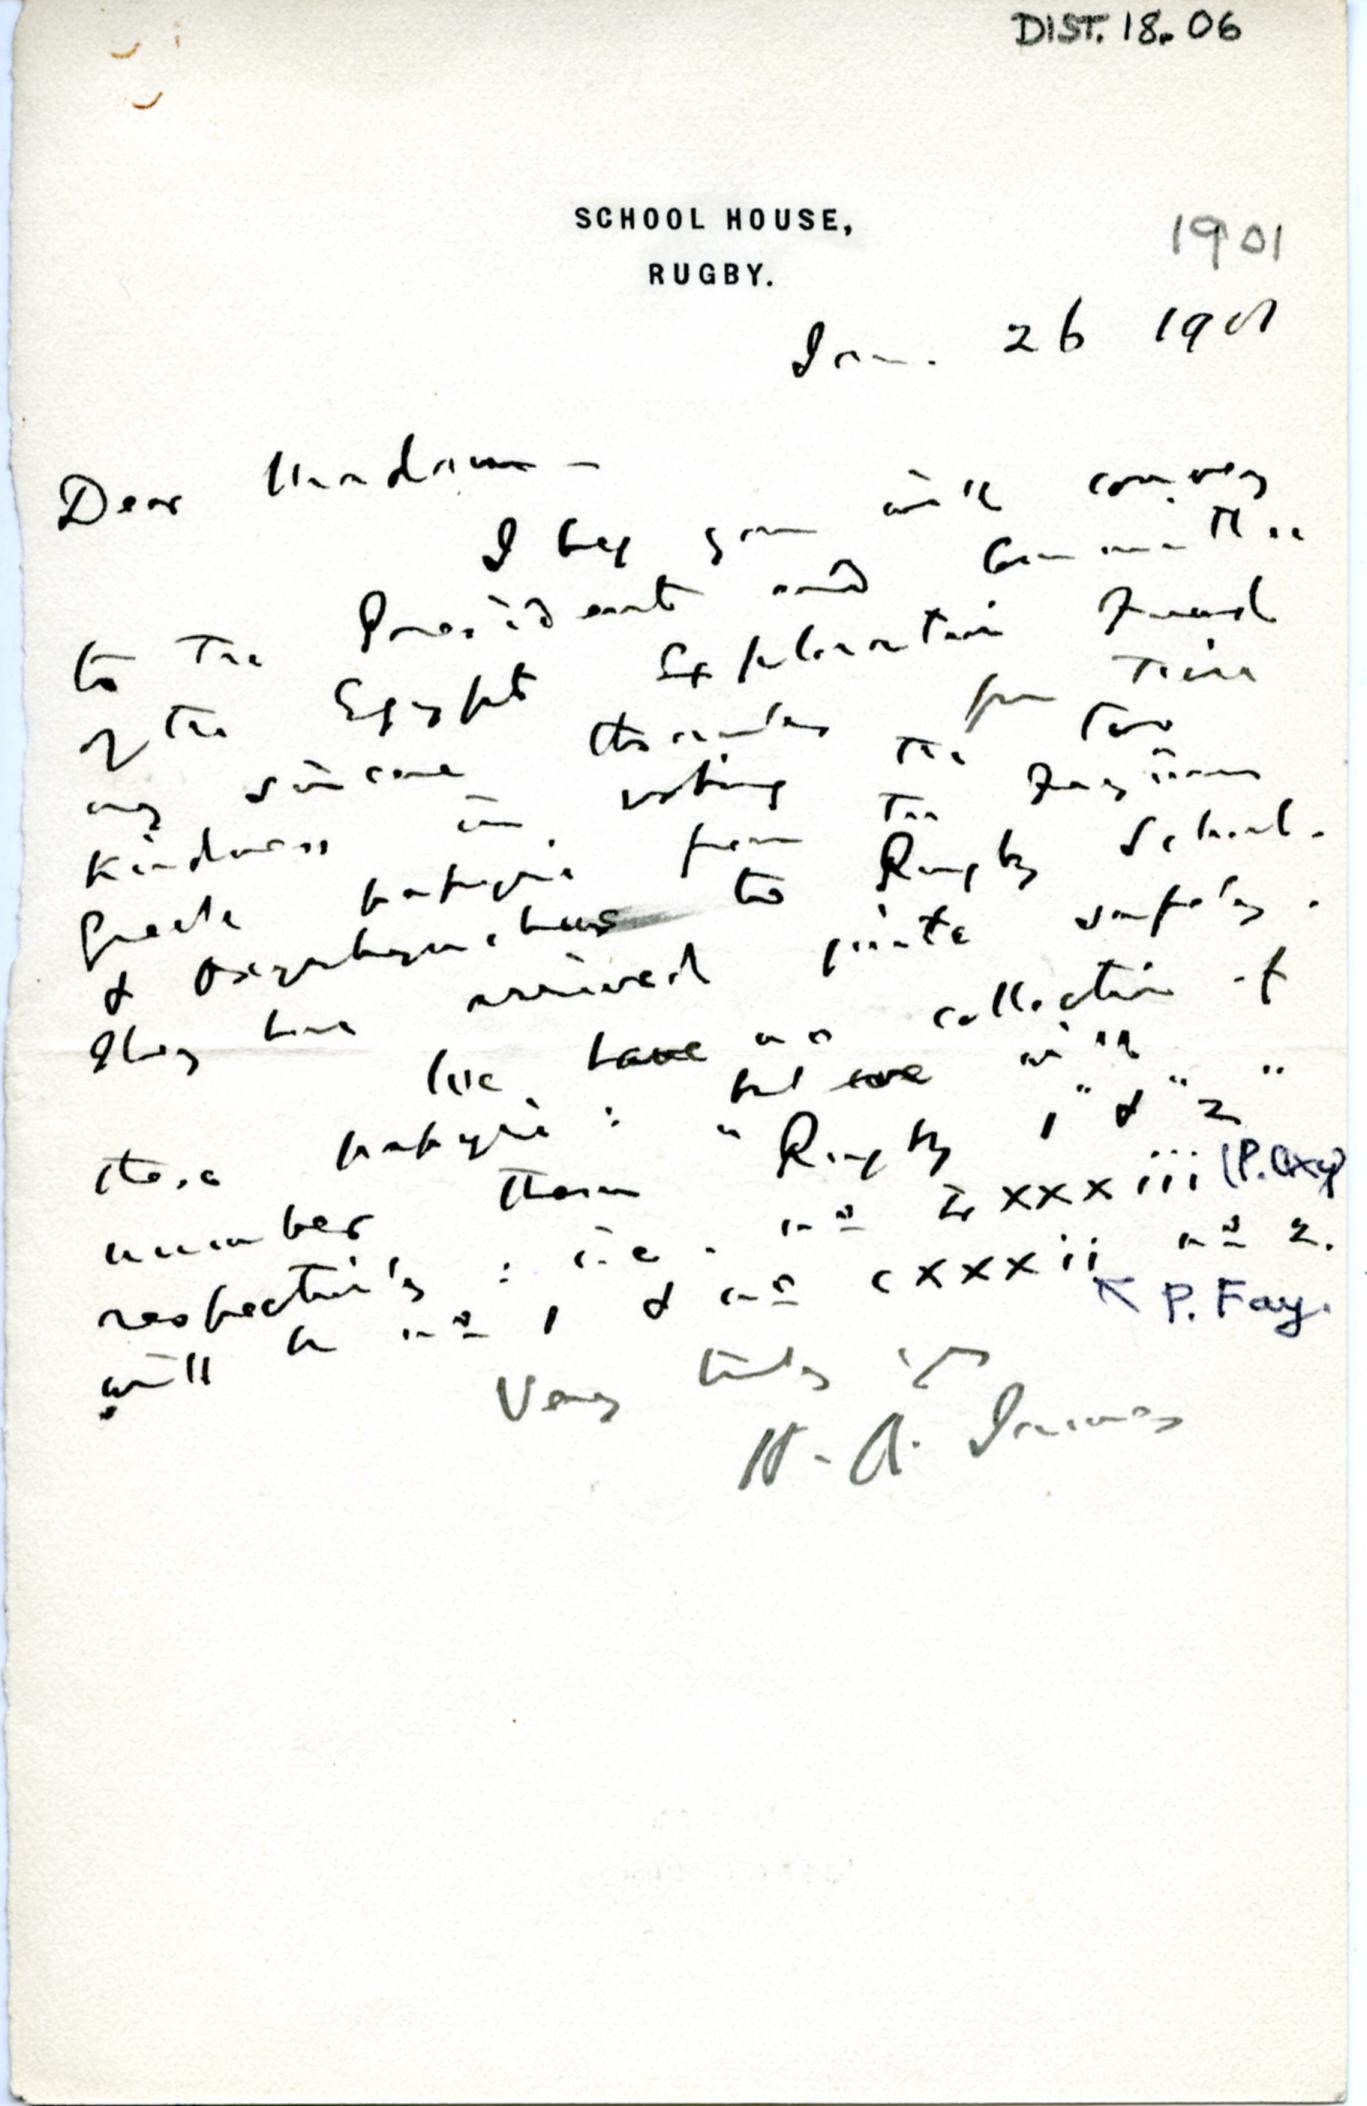 DIST. 18.06
SCHOOL HOUSE,
RUGBY.
1901
Jan. 26 1901
Dear Madam –
I beg you will convey
to the President and Committee
of the Egypt Exploration Fund
my sincere thanks for their
kindness in voting the two
Greek papyri from the Fayûm
& Oxyrhynchus to Rugby School.
They have arrived quite safely.
We have no collection of
these papyri: but we will
number them "Rugby 1" & "2"
respectively: i.e. no xxxiii (P. Oxy)
will be no 1 & no cxxxii no 2.
P. Fay.
Very truly yrs
H. A. James